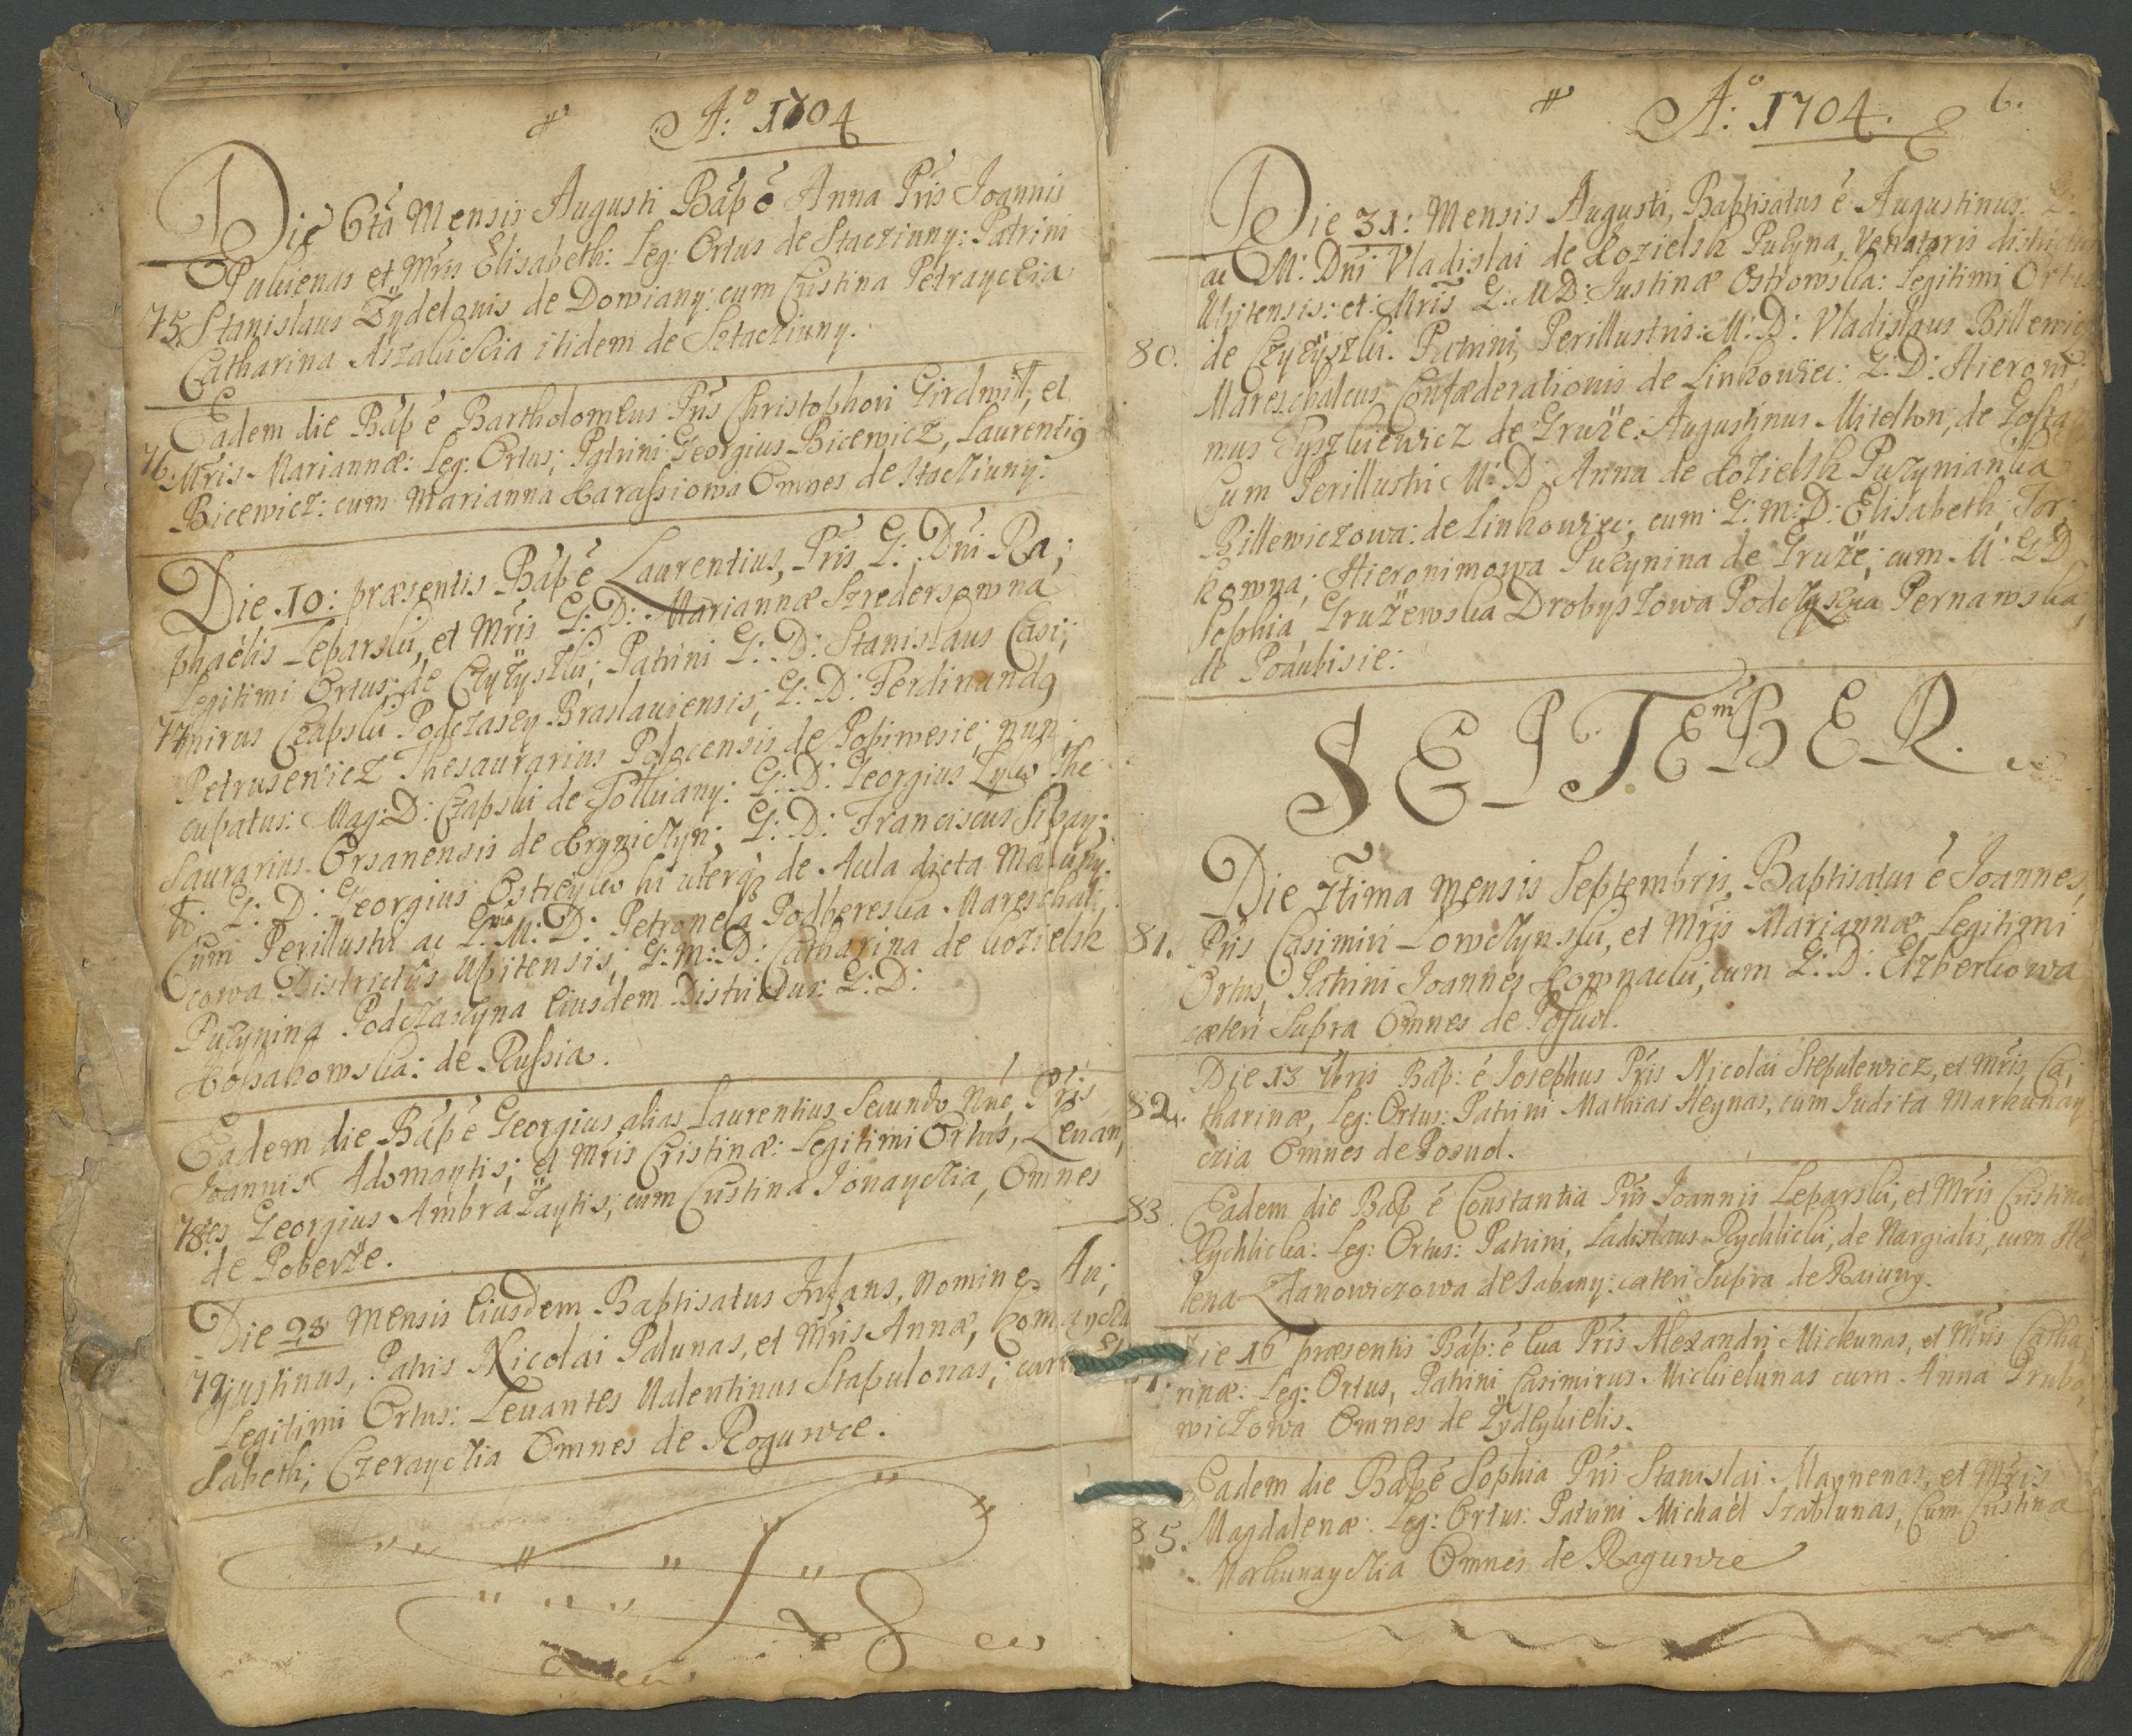 A.º 1704
Die 6ta Mensis Augusti Bap: é Anna Pris Joannis
Puluienas et Mris Elisabeth: Leg: Ortus de Stacziuny: Patrini
75. Stanislaus Zydelonis de Dowiany: cum Cristina Petrayckia
Catharina Aszakickia itidem de Setacziuny.
Eadem die Bap é Bartholomeus Pris Christophori Girdwill, et
76. Mris Mariannæ: Leg: Ortus; Patrini Georgius Bicewicz, Laurenti9
Bicewicz: cum Marianna Karassiowa Omnes de Stacziuny:
Die 10: præsentis Bap é Laurentius, Pris G: Dni Ra;
phaëlis Leparski, et Mris G: D: Mariannæ Szredersowna
Legitimi Ortus; de Czyzyszki; Patrini G: D: Stanislaus Casi;
77 mirus Czapski Podczaszy Braslauiensis; G: D: Ferdinand9
Petrusewicz Thesaurarius Polocensis de Popiwesie; nun
cupatus: Mag: D: Czapski de Tolkiany: G: D: Georgius Zyko The
saurarius Orsanensis de Eryniczyn; G: D: Franciscus
G: D: Georgius Ostreyko hi uterq3 de Aula dicta
Cum Perillustri ac G: M: D: Petronela Podbereska Mareschal
cowa Districtûs Upitensis; G: M: D: Catharina de Kozielsk
Puzynina Podczaszyna Eiusdem Districtus: G: D:
Kossakowska: de Russia.
Eadem die Bap é Georgius alias Laurentius Secundo Nne, Pris
Joannis Adomaytis; et Mris Cristinæ: Legitimi Ortus, Leuan,
78. tes Georgius Ambrazaytis; cum Cristina Jonayczia, Omnes
de Poberze.
Die 28 Mensis Eiusdem Baptisatus Infans, Nomine Au;
79 gustinus, Patris Nicolai Palunas, et Mris Annæ,
Legitimi Ortus: Leuantes Ualentinus Stapulonas; cum
sabeth; Czerayczia Omnes de Roguwce.
A.º 1704. 6.
Die 31: Mensis Augusti, Baptisatus é Augustinus: G:
ac M: Dni Vladislai de Kozielsk Puzyna, Venatoris districtus
Upitensis: et: Mris G: M D: Iustinæ Ostrowska: Legitimi Ortus
80. de Czyzyszki. Patrini, Perillustris: M: D: Vladislaus Billewicz
Mareschalcus Confæderationis de Linkowiec: G: D: Hieroni;
mus Tyszkiewicz de Gruze: Augustinus Mitelton, de
Cum Perillustri M: D: Anna de Kozielsk Puzynianka
Billewiczowa: de Linkowiec; cum G: M: D: Elisabeth; Tor;
kowna; Hieronimowa Puzynina de Gruze; cum M: G D
Sophia Gruzewska Drobyszowa Podczaszyna Pernawska
de Podubisie:
SEPTEmBER.
Die 7tima Mensis Septembris, Baptisatus é Joannes,
81. Pris Casimiri Lowczynski, et Mris Mariannæ Legitimi
Ortus, Patrini Joannes Kownacki; cum G: D: Elzberkowa
cæteri Supra Omnes de Posuol.
Die 13 7bris Bap: é Iosephus Pris Nicolai Stepulewicz, et Mris, Ca;
82. tharinæ, Leg: Ortus: Patrini Mathias Heynas, cum Iudita Markunay
czia Omnes de Posuol.
83. Eadem die Bap é Constantia Pris Joannis Leparski, et Mris Cristinæ
Rychlicka: Leg: Ortus: Patrini, Ladislaus Rychlicki, de Nargialis, cum He
lena Zdanowiczowa de Iabany: cæteri Supra de Raiuny.
Die 16 præsentis Bap: é Eua Pris Alexandri Mickunas, et Mris Catha
rinæ: Leg: Ortus, Patrini Casimirus Mickielunas cum Anna Prubo,
wiczowa Omnes de Zydeykielis.
Eadem die Bap é Sophia Pris Stanislai Maynenas, et Mris
85. Magdalenæ: Leg: Ortus: Patrini Michaël Szablunas, Cum Cristina
Markunayczia Omnes de Roguwce